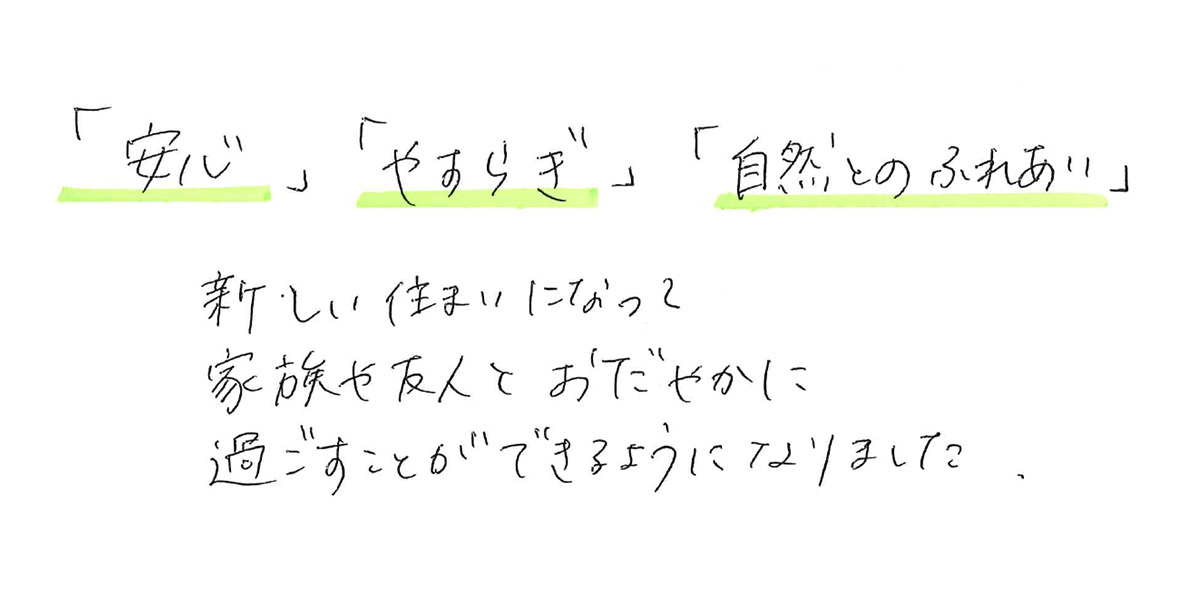 「安心」「やすらぎ」「自然とのふれあい」
新しい住まいになって
家族や友人とおだやかに
過ごすことができるようになりました.